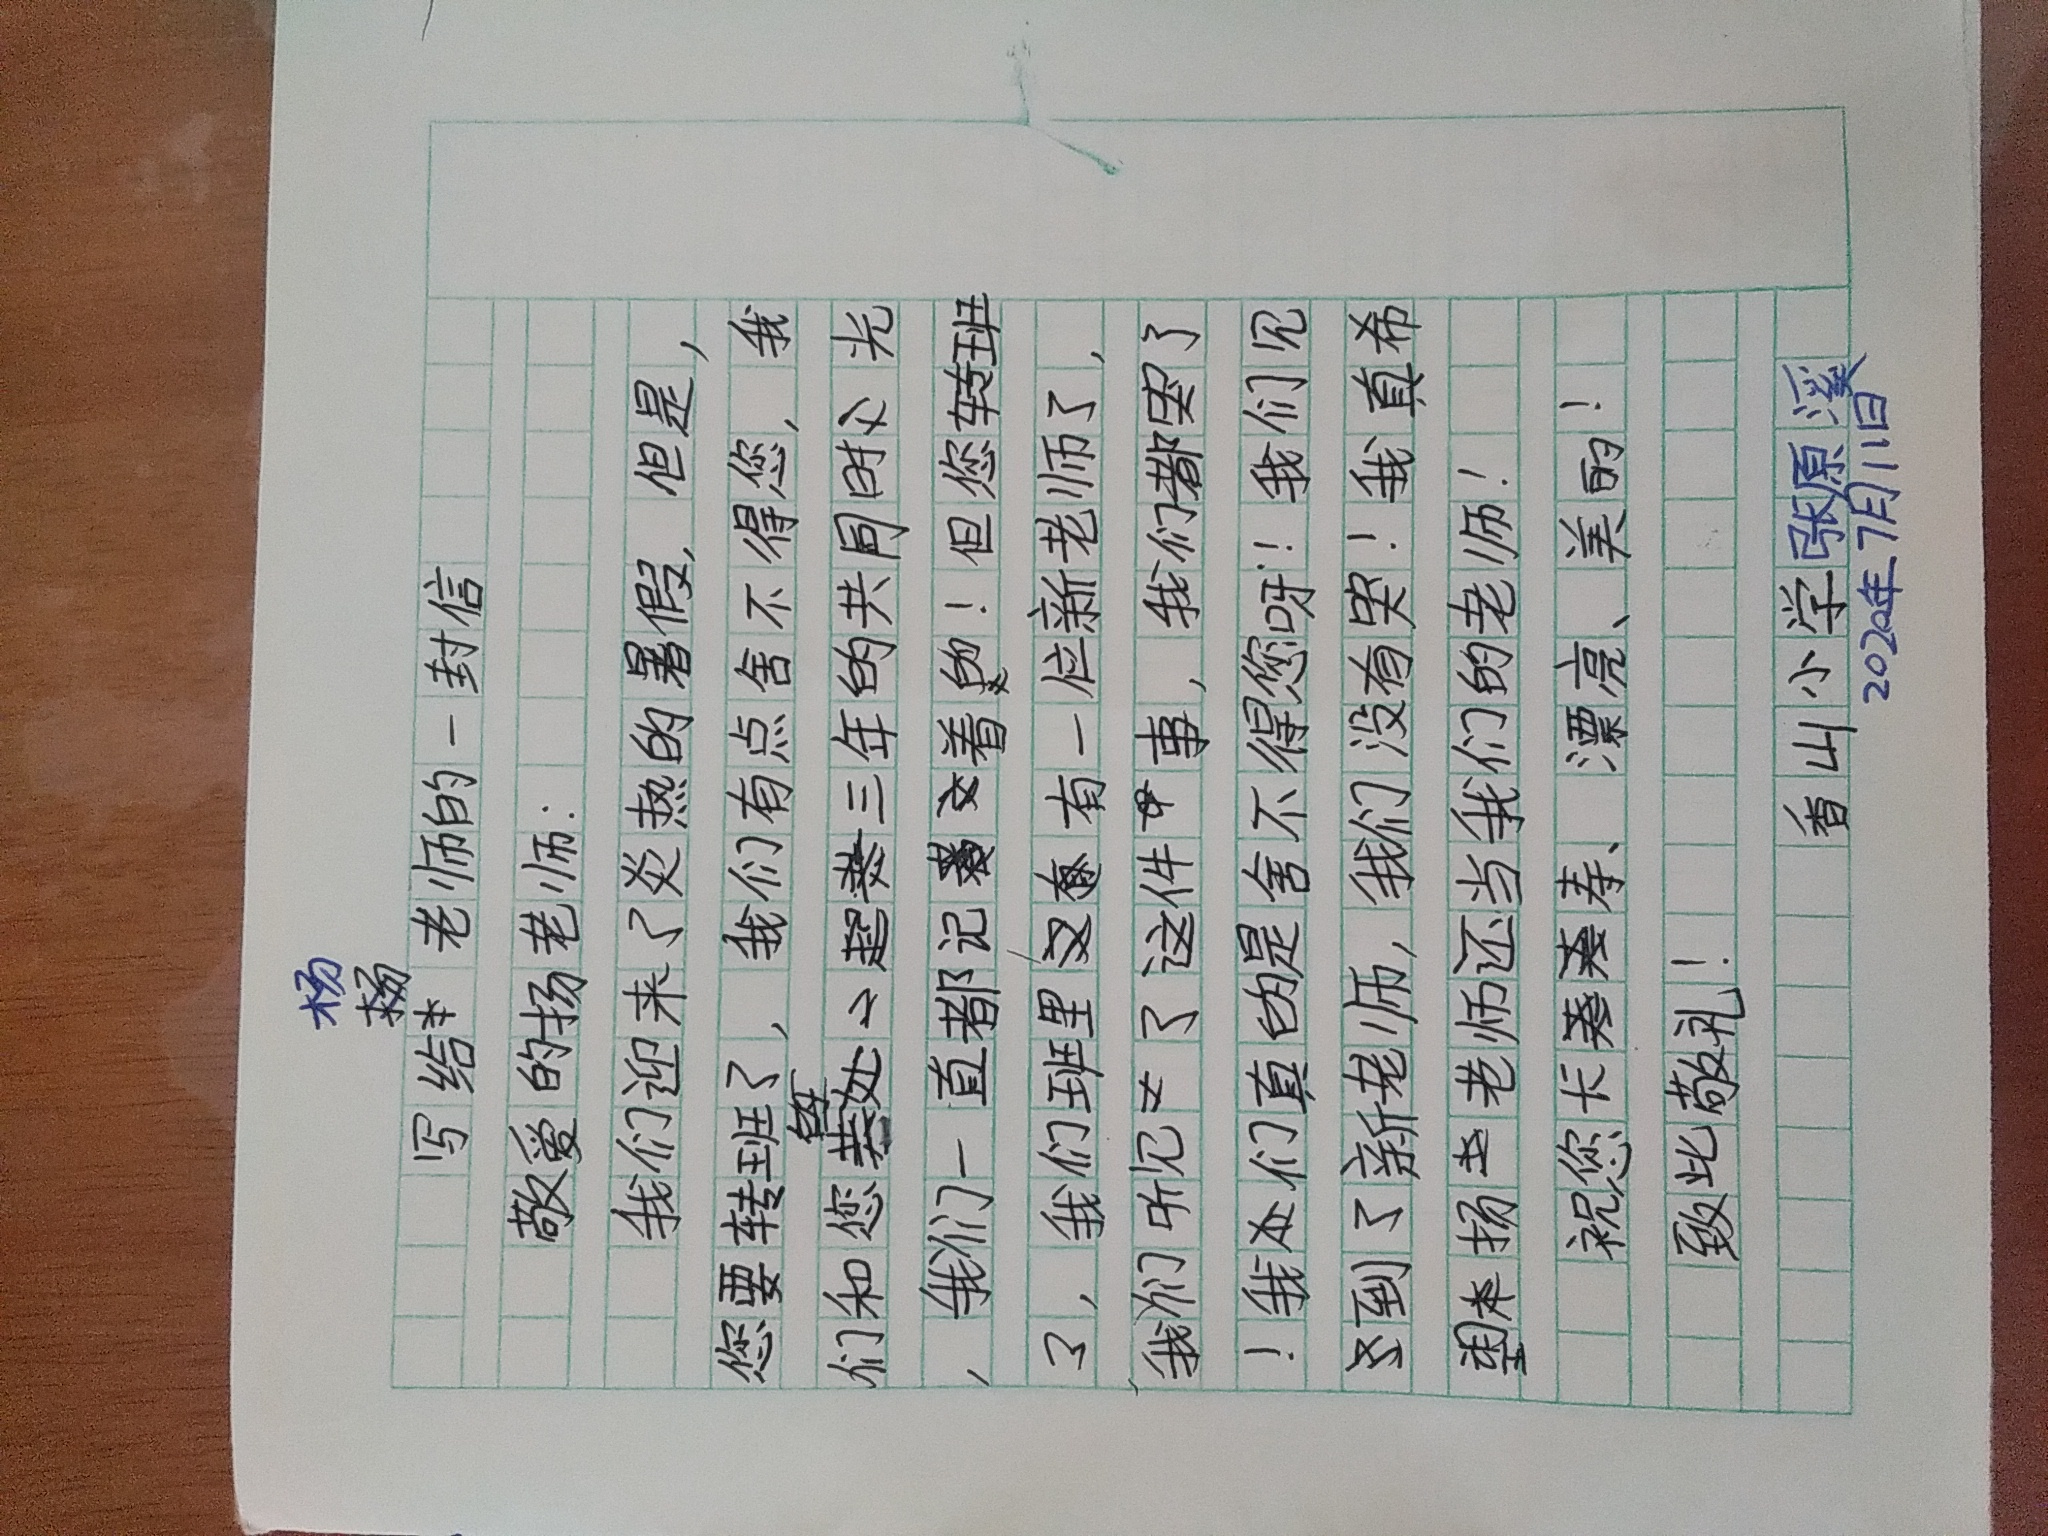 杨
杨
写给 老师的一封信
敬爱的扬老师:
我们迎来了炎热的暑假,但是,
您要转班了,我们有点舍不得您,我
们和您 起 三年的共同时 光
,我们一直都记 着 !但您转班
了,我们班里又 有一位新老师了,
我们听 了这件 事,我们都哭了
!我 们真的是舍不得您呀!我们见
到了新老师,我们没有哭!我真希
扬 老师还当我们的老师!
祝您长 寿、漂亮、美的!
致此敬礼!
香山小学张原溪
2020年7月11日